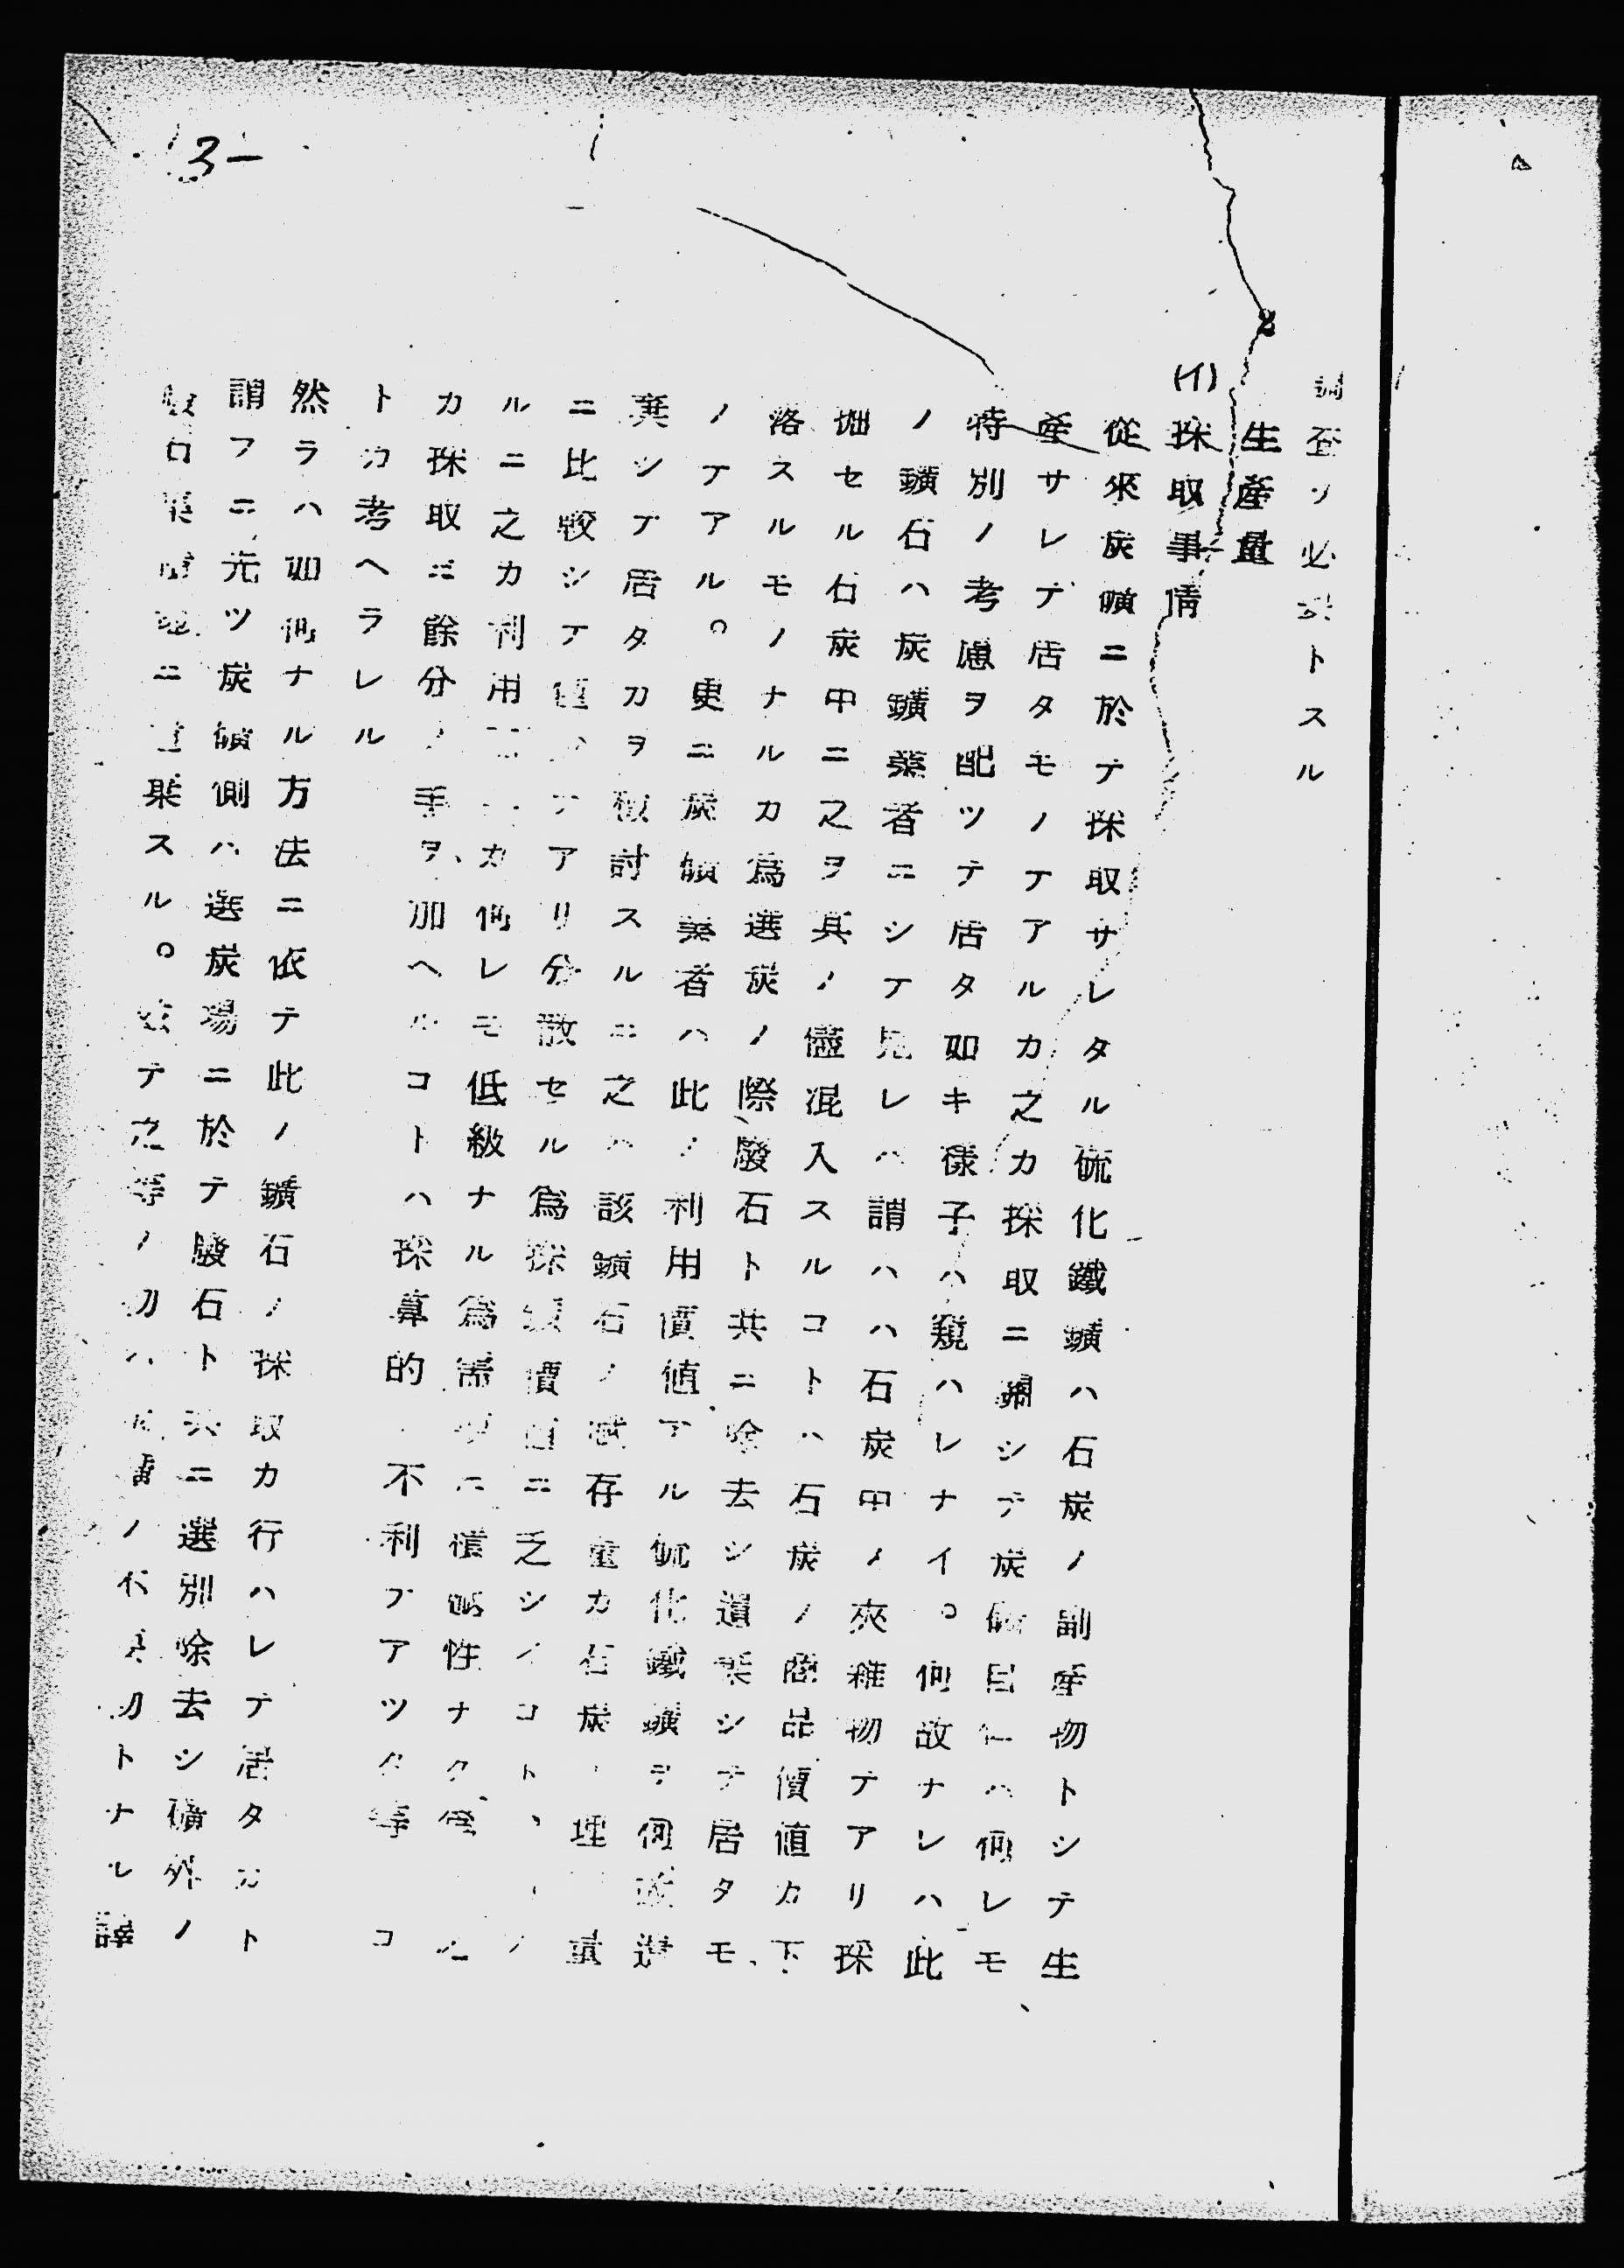 3-
調査ヲ必要トスル
2 生産量
(イ) 採取事情
從來炭礦ニ於テ採取サレタル硫化鐵鑛ハ石炭ノ副産物トシテ生
産サレテ居タモノテアルカ之カ採取ニ關シテ炭礦自体ハ何レモ
特別ノ考慮ヲ配ツテ居タ如キ樣子ハ窺ハレナイ。何故ナレハ此
ノ鑛石ハ炭鑛業者ニシテ見レハ謂ハハ石炭中ノ夾雜物テアリ採
掘セル石炭中ニ之ヲ其ノ儘混入スルコトハ石炭ノ商品價値カ下
落スルモノナルカ爲選炭ノ際廢石ト共ニ除去シ遺棄シテ居タモ
ノテアル。更ニ炭礦業者ハ此ノ利用價値アル硫化鐵鑛ヲ何故遺
棄シテ居タカヲ檢討スルニ之ハ該鑛石ノ賦存量カ石炭ノ埋 量
ニ比較シテ僅少テアリ分散セル爲採 價値ニ乏シイコト、
ルニ之カ利用 カ何レモ低級ナル爲需要ニ積極性ナク
カ採取ニ餘分ノ手ヲ加ヘルコトハ採算的 不利テアツタ等 コ
トカ考ヘラレル
然ラハ如何ナル方法ニ依テ此ノ鑛石ノ採取カ行ハレテ居タカト
謂フニ先ツ炭礦側ハ選炭場ニ於テ廢石ト共ニ選別除去シ礦外ノ
ニ遺棄スル。茲テ之等ノ 刃ハ ノ トナル譯